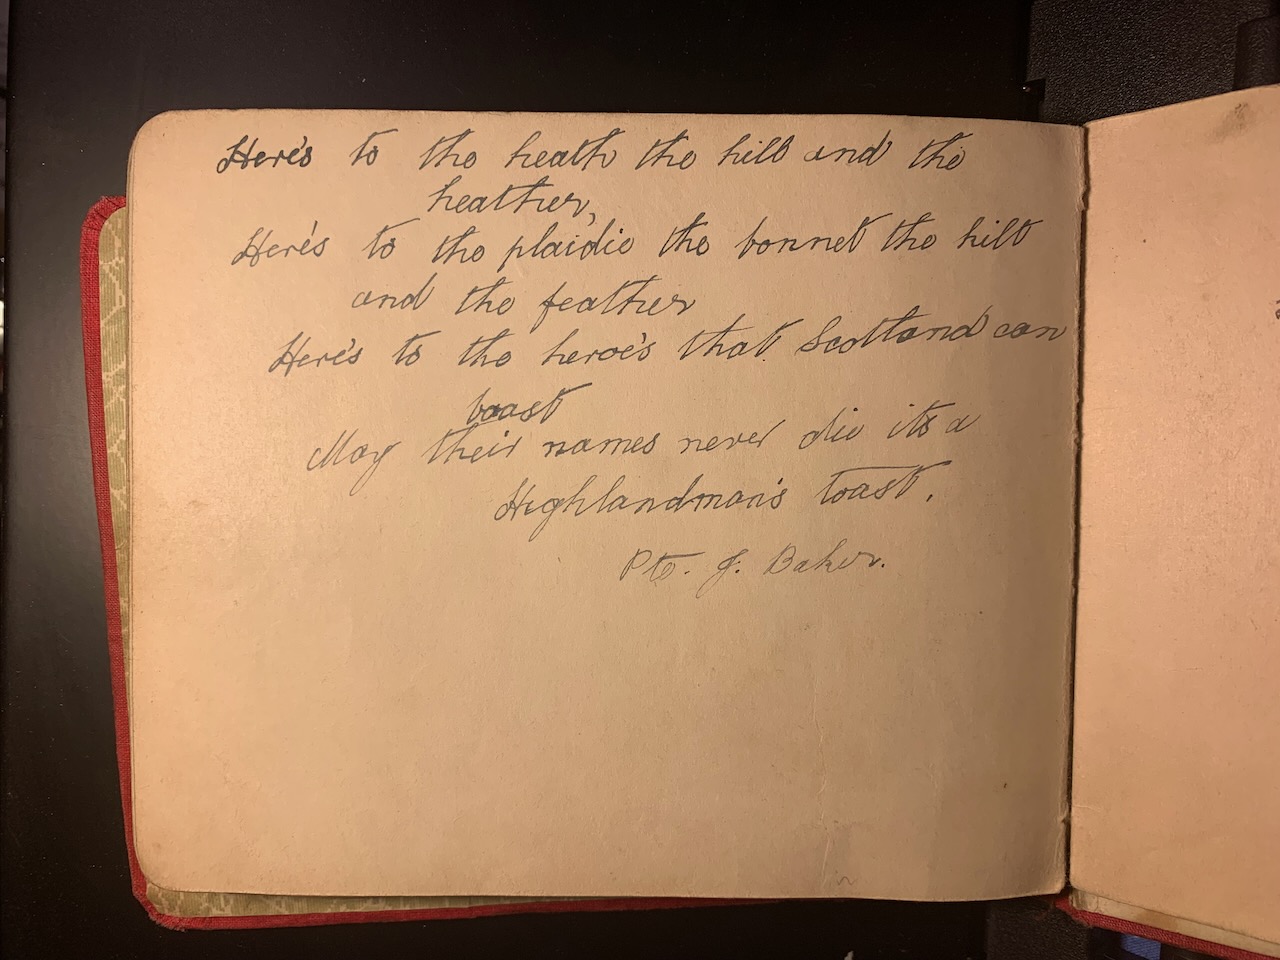 Here's to the heath the hill and the
heather,
Here's to the plaidie the bonnet the kilt
and the feather
Here's to the heroe's that Scotland can
boast
May their names never die its a
Highlandman's toast.
Pte. J. Baker.